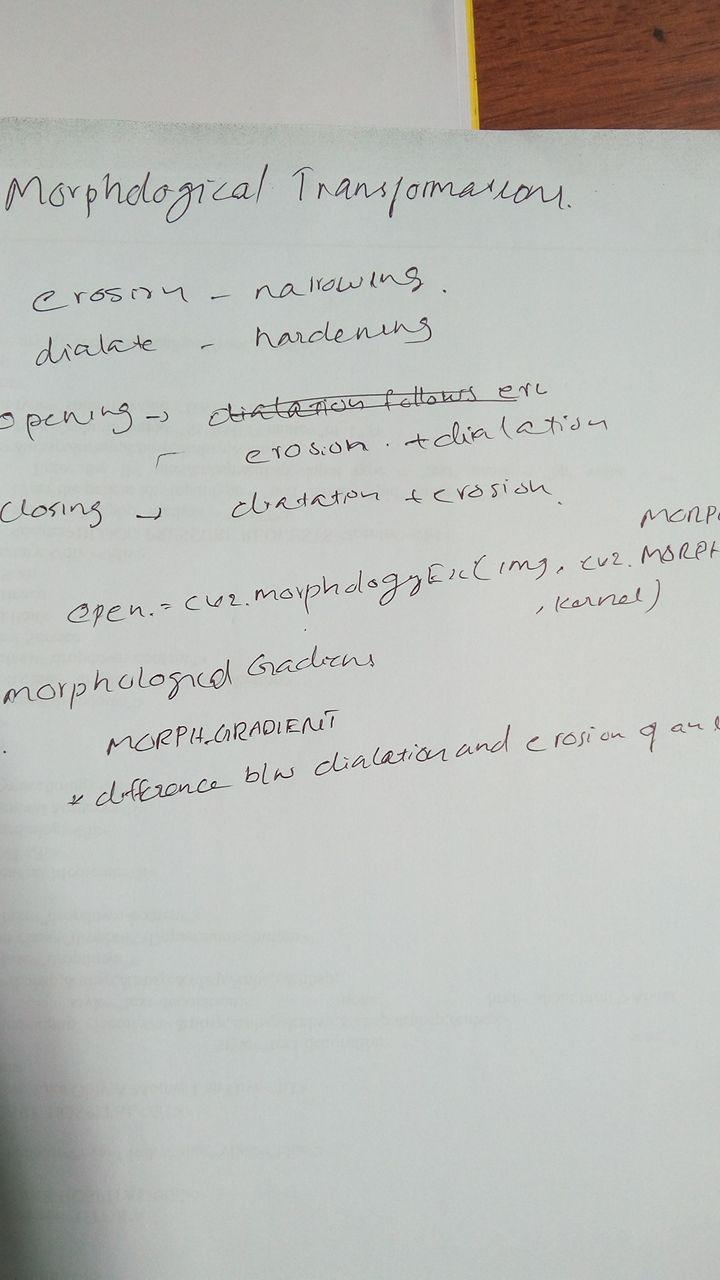 Morphological Transformations.
erosion - narrowing.
dialate - hardening
opening → dialation follows ero
erosion. + dialation
closing → diatation + erosion.
MORP
open. = cv2.morphologyEx(img, cv2.MORPH
, kernel)
morphological Gradiens
MORPH_GRADIENT
* difference b/w dialation and erosion of an